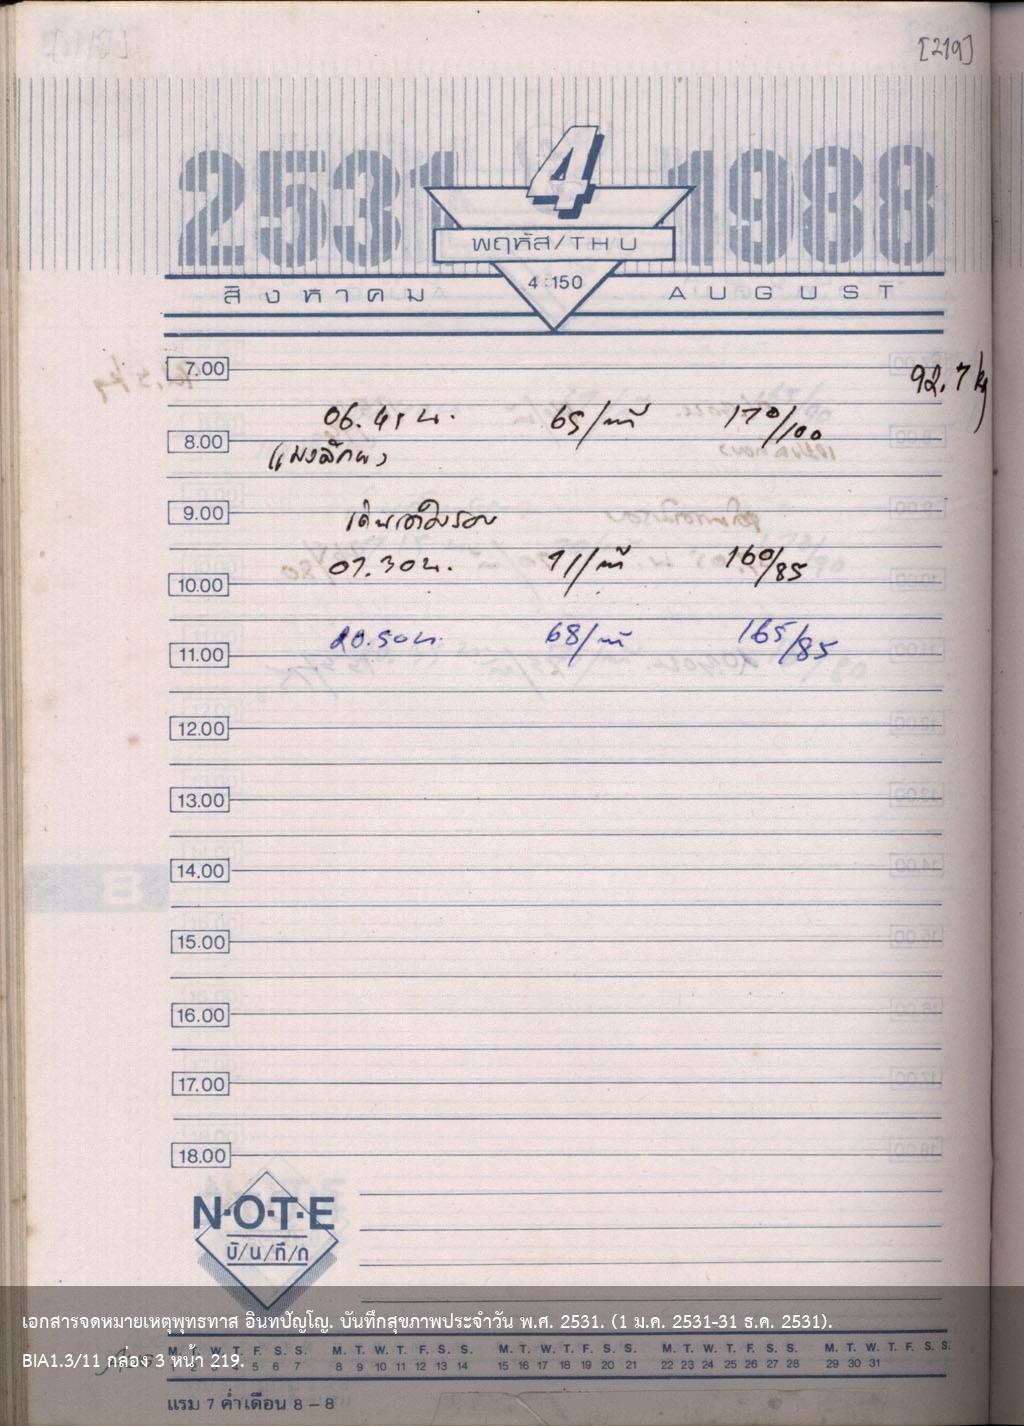 [219]
2531 4 1988
พฤหัส/THU
4:150
สิงหาคม AUGUST
7.00
92.7 kg
06.45 น. 65/นาที 170/100
8.00
9.00
07.30 น. 71/นาที 160/85
10.00
20.50 น. 68/นาที 165/85
11.00
12.00
13.00
14.00
15.00
16.00
17.00
18.00
N·O·T·E
บั/น/ทึ/ก
เอกสารจดหมายเหตุพุทธทาส อินทปัญโญ. บันทึกสุขภาพประจำวัน พ.ศ. 2531. (1 ม.ค. 2531-31 ธ.ค. 2531).
M. T. W. T. F. S. S. M. T. W. T. F. S. S. M. T. W. T. F. S. S. M. T. W. T. F. S. S. M. T. W. T. F. S. S.
BIA1.3/11 กล่อง 3 หน้า 219.
5 6 7 8 9 10 11 12 13 14 15 16 17 18 19 20 21 22 23 24 25 26 27 28 29 30 31
แรม 7 ค่ำเดือน 8 – 8